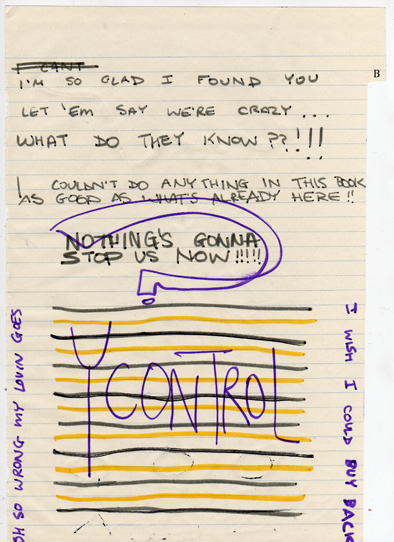 I CANT
B
I'M SO GLAD I FOUND YOU
LET 'EM SAY WE'RE CRAZY...
WHAT DO THEY KNOW??!!!
I COULDN'T DO ANYTHING IN THIS BOOK
AS GOOD AS WHAT'S ALREADY HERE!!
NOTHING'S GONNA
STOP US NOW!!!!!
?
Y CONTROL
OH SO WRONG MY LOVIN GOES
I WISH I COULD BUY BACK